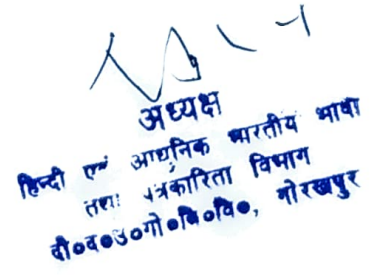 अध्यक्ष
हिन्दी एवं आधुनिक भारतीय भाषा
तथा पत्रकारिता विभाग
दी०द०उ०गो०वि०वि०, गोरखपुर